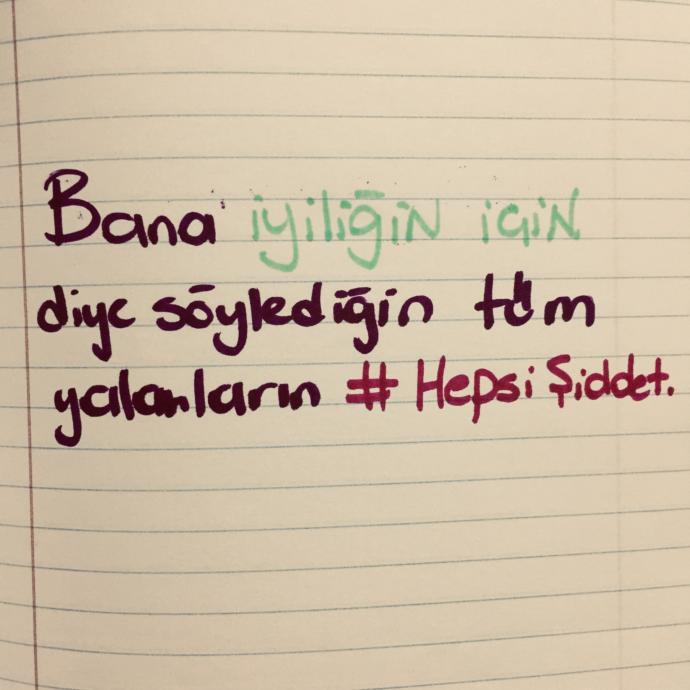 Bana iyiliğin için
diye söylediğin tüm
yalanların # Hepsi Şiddet.